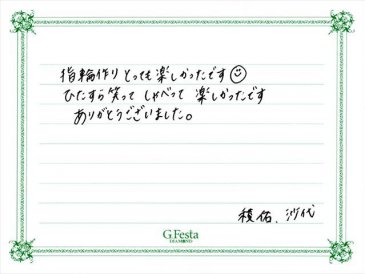 指輪作りとっても楽しかったです☺
ひたすら笑って しゃべって 楽しかったです
ありがとうございました。
積佑、沙代
G.Festa
DIAMOND